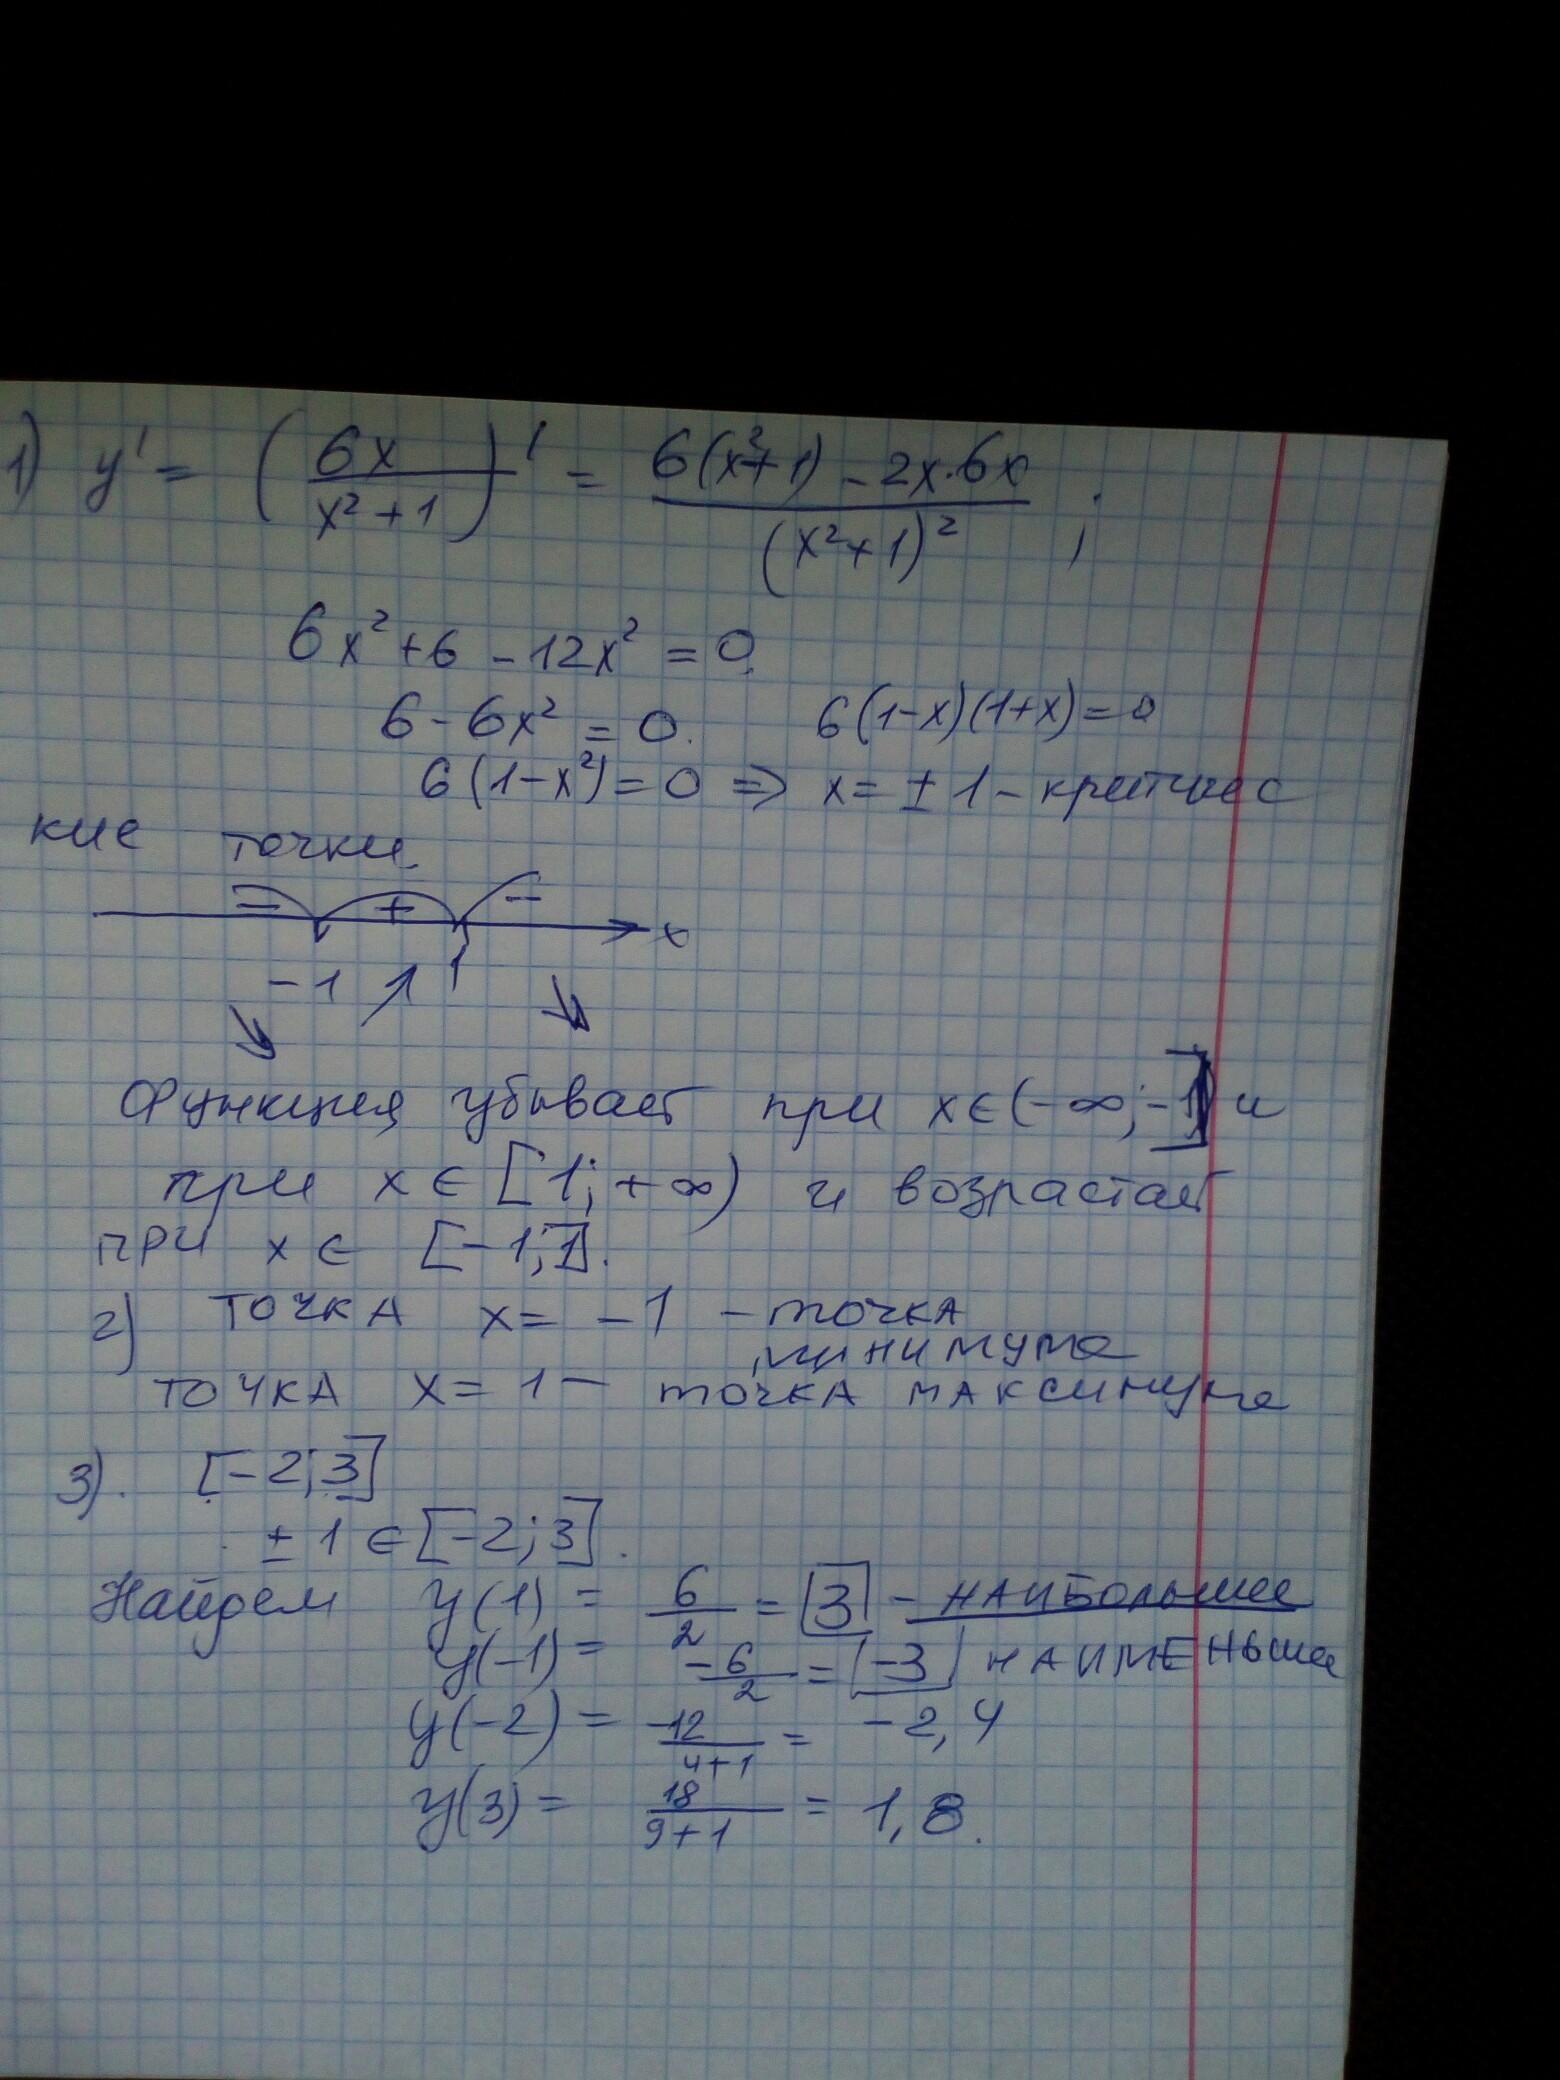 1) y' = (6x / (x² + 1))' = (6(x²+1) - 2x·6x) / (x²+1)² ;
6x² + 6 - 12x² = 0.
6 - 6x² = 0. 6(1-x)(1+x) = 0
6(1-x²) = 0 ⇒ x = ± 1 - критичес
кие точки.
- + - x
-1 ↗ 1 ↘
↘
Функция убывает при x ∈ (-∞; -1] и
при x ∈ [1; +∞) и возрастает
при x ∈ [-1; 1].
2) точка x = -1 - точка
минимума
точка x = 1 - точка максимума
3). [-2; 3]
± 1 ∈ [-2; 3].
Найдем y(1) = 6/2 = 3 - наибольшее
y(-1) = -6/2 = -3 наименьшее
y(-2) = -12/(4+1) = -2,4
y(3) = 18/(9+1) = 1,8.